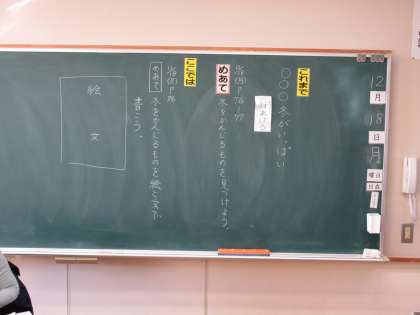 12
月
18
日
月
曜日
日直
これまで
○○○冬がいっぱい
P76～77
めあて
冬をかんじるものを見つけよう。
ここでは
P76
めあて
冬をかんじるものを絵と文で
書こう。
絵
文